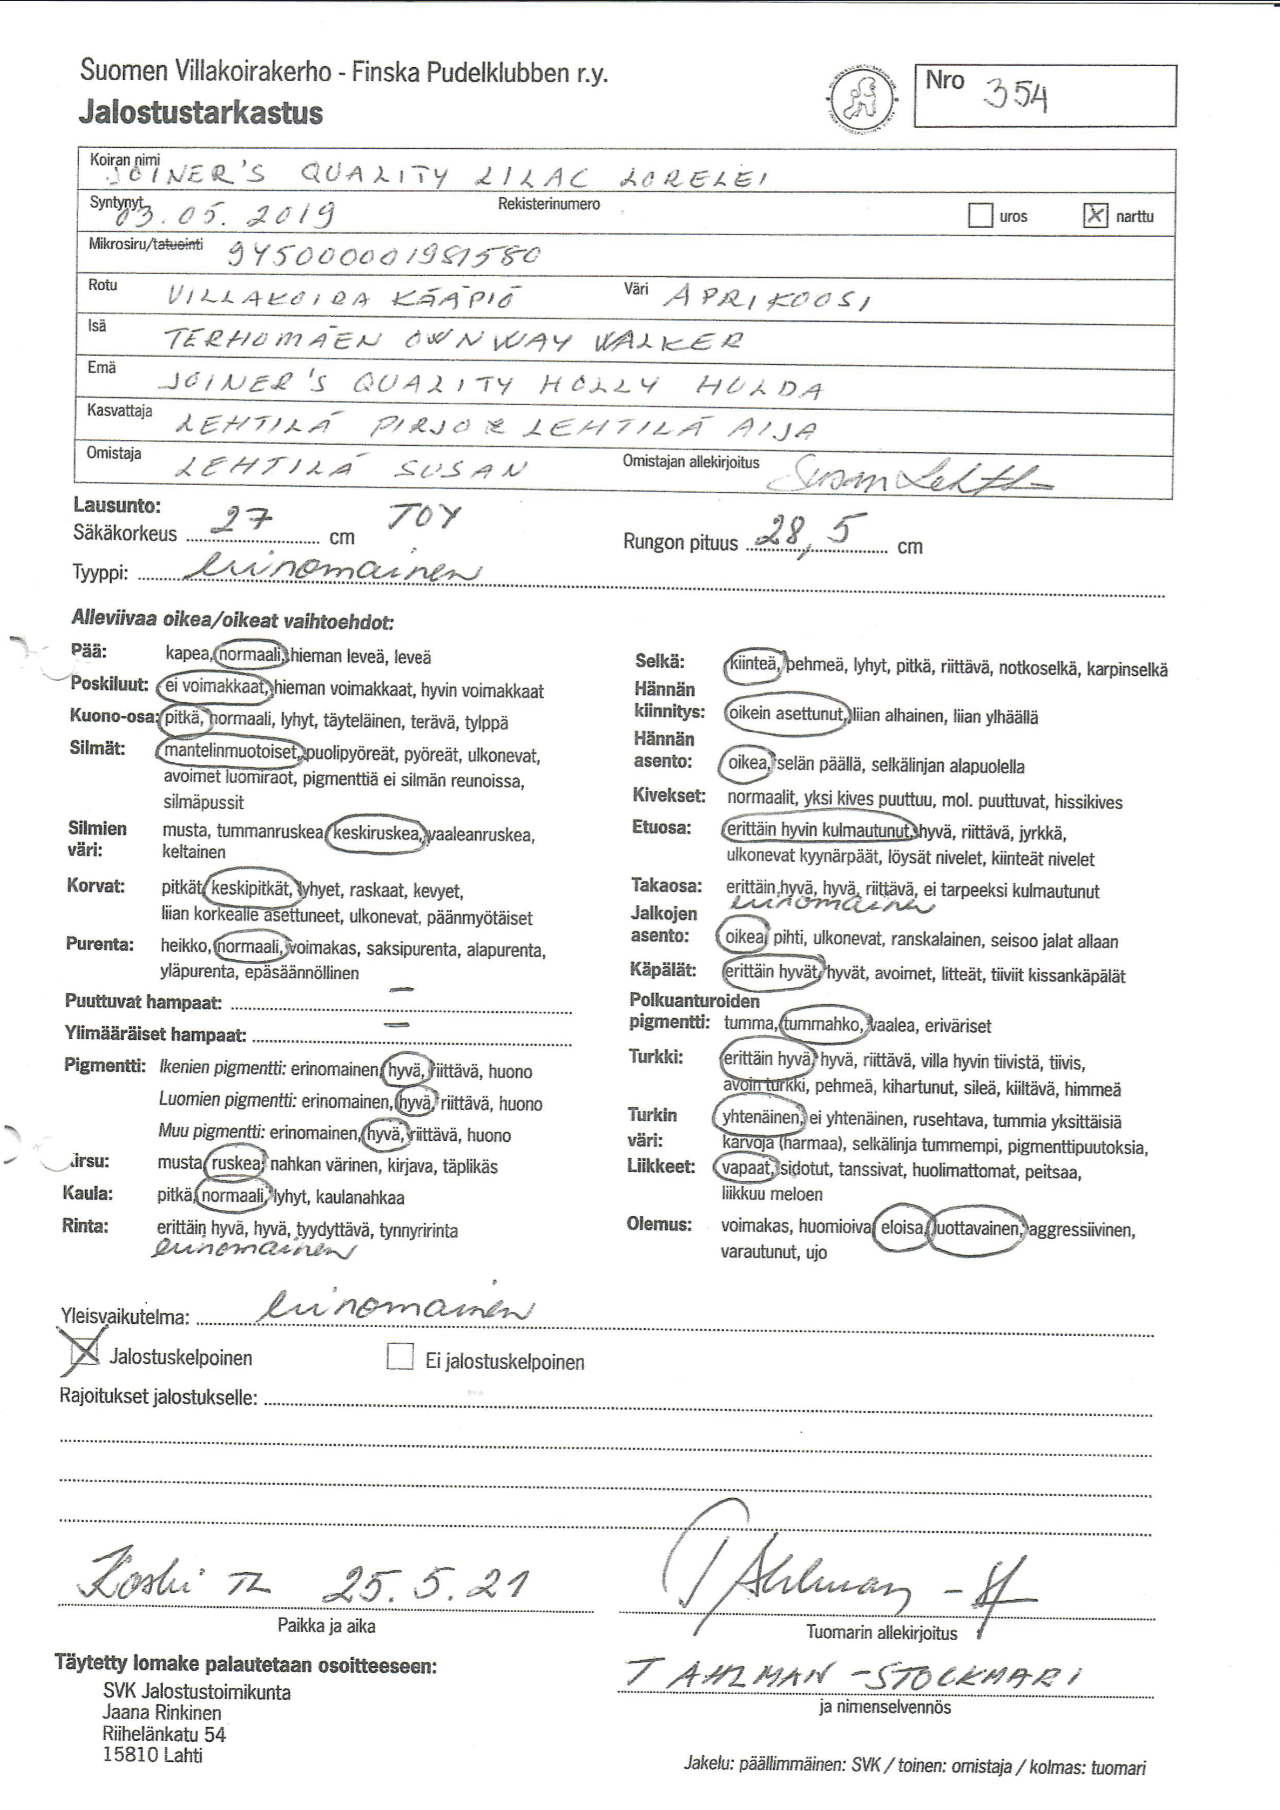 Suomen Villakoirakerho - Finska Pudelklubben r.y.
Jalostustarkastus
Nro 354
Koiran nimi JOINER'S QUALITY LILAC LORELEI
Syntynyt 03.05.2019 Rekisterinumero uros X narttu
Mikrosiru/tatuointi 945000001981580
Rotu VILLAKOIRA KÄÄPIÖ Väri APRIKOOSI
Isä TERHOMÄEN OWN WAY WALKER
Emä JOINER'S QUALITY HOLLY HULDA
Kasvattaja LEHTILÄ PIRJO & LEHTILÄ AIJA
Omistaja LEHTILÄ SUSAN Omistajan allekirjoitus Susan Lehtilä
Lausunto:
Säkäkorkeus 27 cm TOY Rungon pituus 28,5 cm
Tyyppi: erinomainen
Alleviivaa oikea/oikeat vaihtoehdot:
Pää: kapea, normaali, hieman leveä, leveä
Poskiluut: ei voimakkaat, hieman voimakkaat, hyvin voimakkaat
Kuono-osa: pitkä, normaali, lyhyt, täyteläinen, terävä, tylppä
Silmät: mantelinmuotoiset, puolipyöreät, pyöreät, ulkonevat,
avoimet luomiraot, pigmenttiä ei silmän reunoissa,
silmäpussit
Silmien väri: musta, tummanruskea, keskiruskea, vaaleanruskea,
keltainen
Korvat: pitkät, keskipitkät, lyhyet, raskaat, kevyet,
liian korkealle asettuneet, ulkonevat, päänmyötäiset
Purenta: heikko, normaali, voimakas, saksipurenta, alapurenta,
yläpurenta, epäsäännöllinen
Puuttuvat hampaat: –
Ylimääräiset hampaat: –
Pigmentti: Ikenien pigmentti: erinomainen, hyvä, riittävä, huono
Luomien pigmentti: erinomainen, hyvä, riittävä, huono
Muu pigmentti: erinomainen, hyvä, riittävä, huono
irsu: musta, ruskea, nahkan värinen, kirjava, täplikäs
Kaula: pitkä, normaali, lyhyt, kaulanahkaa
Rinta: erittäin hyvä, hyvä, tyydyttävä, tynnyririnta
erinomainen
Selkä: kiinteä, pehmeä, lyhyt, pitkä, riittävä, notkoselkä, karpinselkä
Hännän
kiinnitys: oikein asettunut, liian alhainen, liian ylhäällä
Hännän
asento: oikea, selän päällä, selkälinjan alapuolella
Kivekset: normaalit, yksi kives puuttuu, mol. puuttuvat, hissikives
Etuosa: erittäin hyvin kulmautunut, hyvä, riittävä, jyrkkä,
ulkonevat kyynärpäät, löysät nivelet, kiinteät nivelet
Takaosa: erittäin hyvä, hyvä, riittävä, ei tarpeeksi kulmautunut
erinomainen
Jalkojen
asento: oikea, pihti, ulkonevat, ranskalainen, seisoo jalat allaan
Käpälät: erittäin hyvät, hyvät, avoimet, litteät, tiiviit kissankäpälät
Polkuanturoiden
pigmentti: tumma, tummahko, vaalea, eriväriset
Turkki: erittäin hyvä, hyvä, riittävä, villa hyvin tiivistä, tiivis,
avoin turkki, pehmeä, kihartunut, sileä, kiiltävä, himmeä
Turkin yhtenäinen, ei yhtenäinen, rusehtava, tummia yksittäisiä
väri: karvoja (harmaa), selkälinja tummempi, pigmenttipuutoksia,
Liikkeet: vapaat, sidotut, tanssivat, huolimattomat, peitsaa,
liikkuu meloen
Olemus: voimakas, huomioiva, eloisa, luottavainen, aggressiivinen,
varautunut, ujo
Yleisvaikutelma: erinomainen
X Jalostuskelpoinen Ei jalostuskelpoinen
Rajoitukset jalostukselle:
Koski TL 25.5.21
Paikka ja aika
T Ahlman-St
Tuomarin allekirjoitus
T AHLMAN-STOCKMARI
ja nimenselvennös
Täytetty lomake palautetaan osoitteeseen:
SVK Jalostustoimikunta
Jaana Rinkinen
Riihelänkatu 54
15810 Lahti
Jakelu: päällimmäinen: SVK / toinen: omistaja / kolmas: tuomari